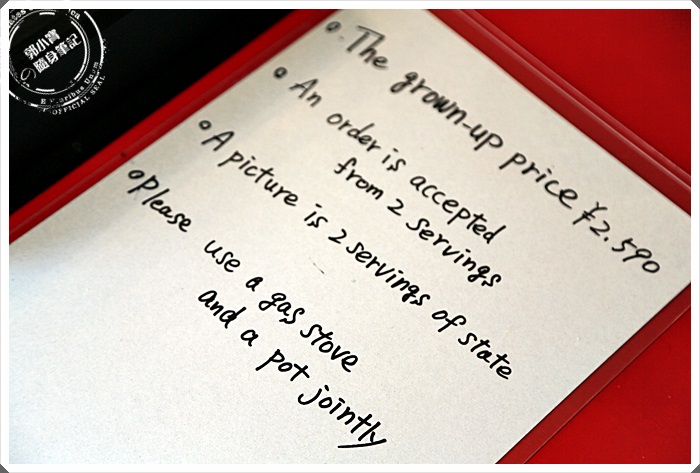 The grown-up price ¥2.590
An order is accepted
from 2 servings
A picture is 2 servings of state
Please use a gas stove
and a pot jointly
郭小寶
の隨身筆記
E Pluribus Unum
OFFICIAL SEAL